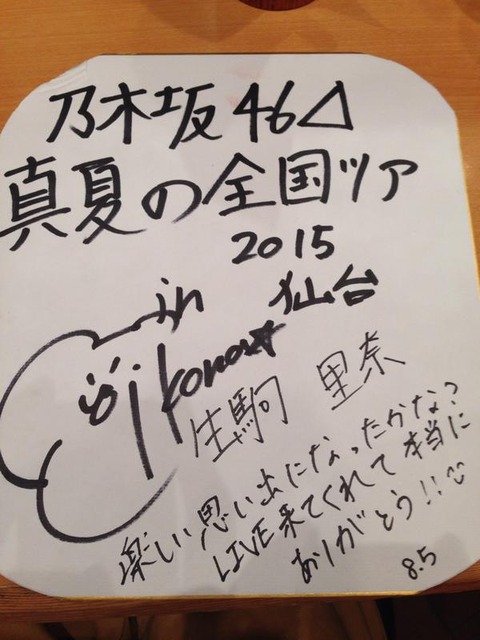 乃木坂46
真夏の全国ツア
2015
in 仙台
生駒 里奈
楽しい思い出になったかな?
LIVE来てくれて本当に
ありがとう!!
8.5